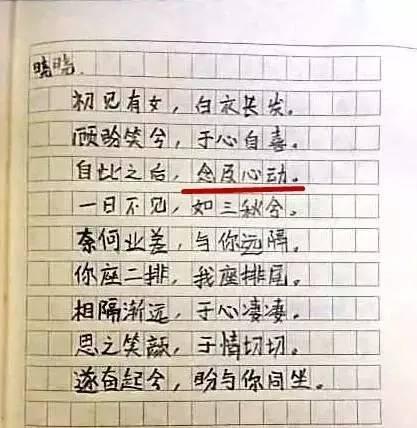 晓晓.
初见有女，白衣长发。
顾盼笑兮，于心自喜。
自此之后，念及心动。
一日不见，如三秋兮。
奈何业差，与你远隔。
你座二排，我座排尾。
相隔渐远，于心凄凄。
思之笑颜，于情切切。
遂奋起兮，盼与你同坐。